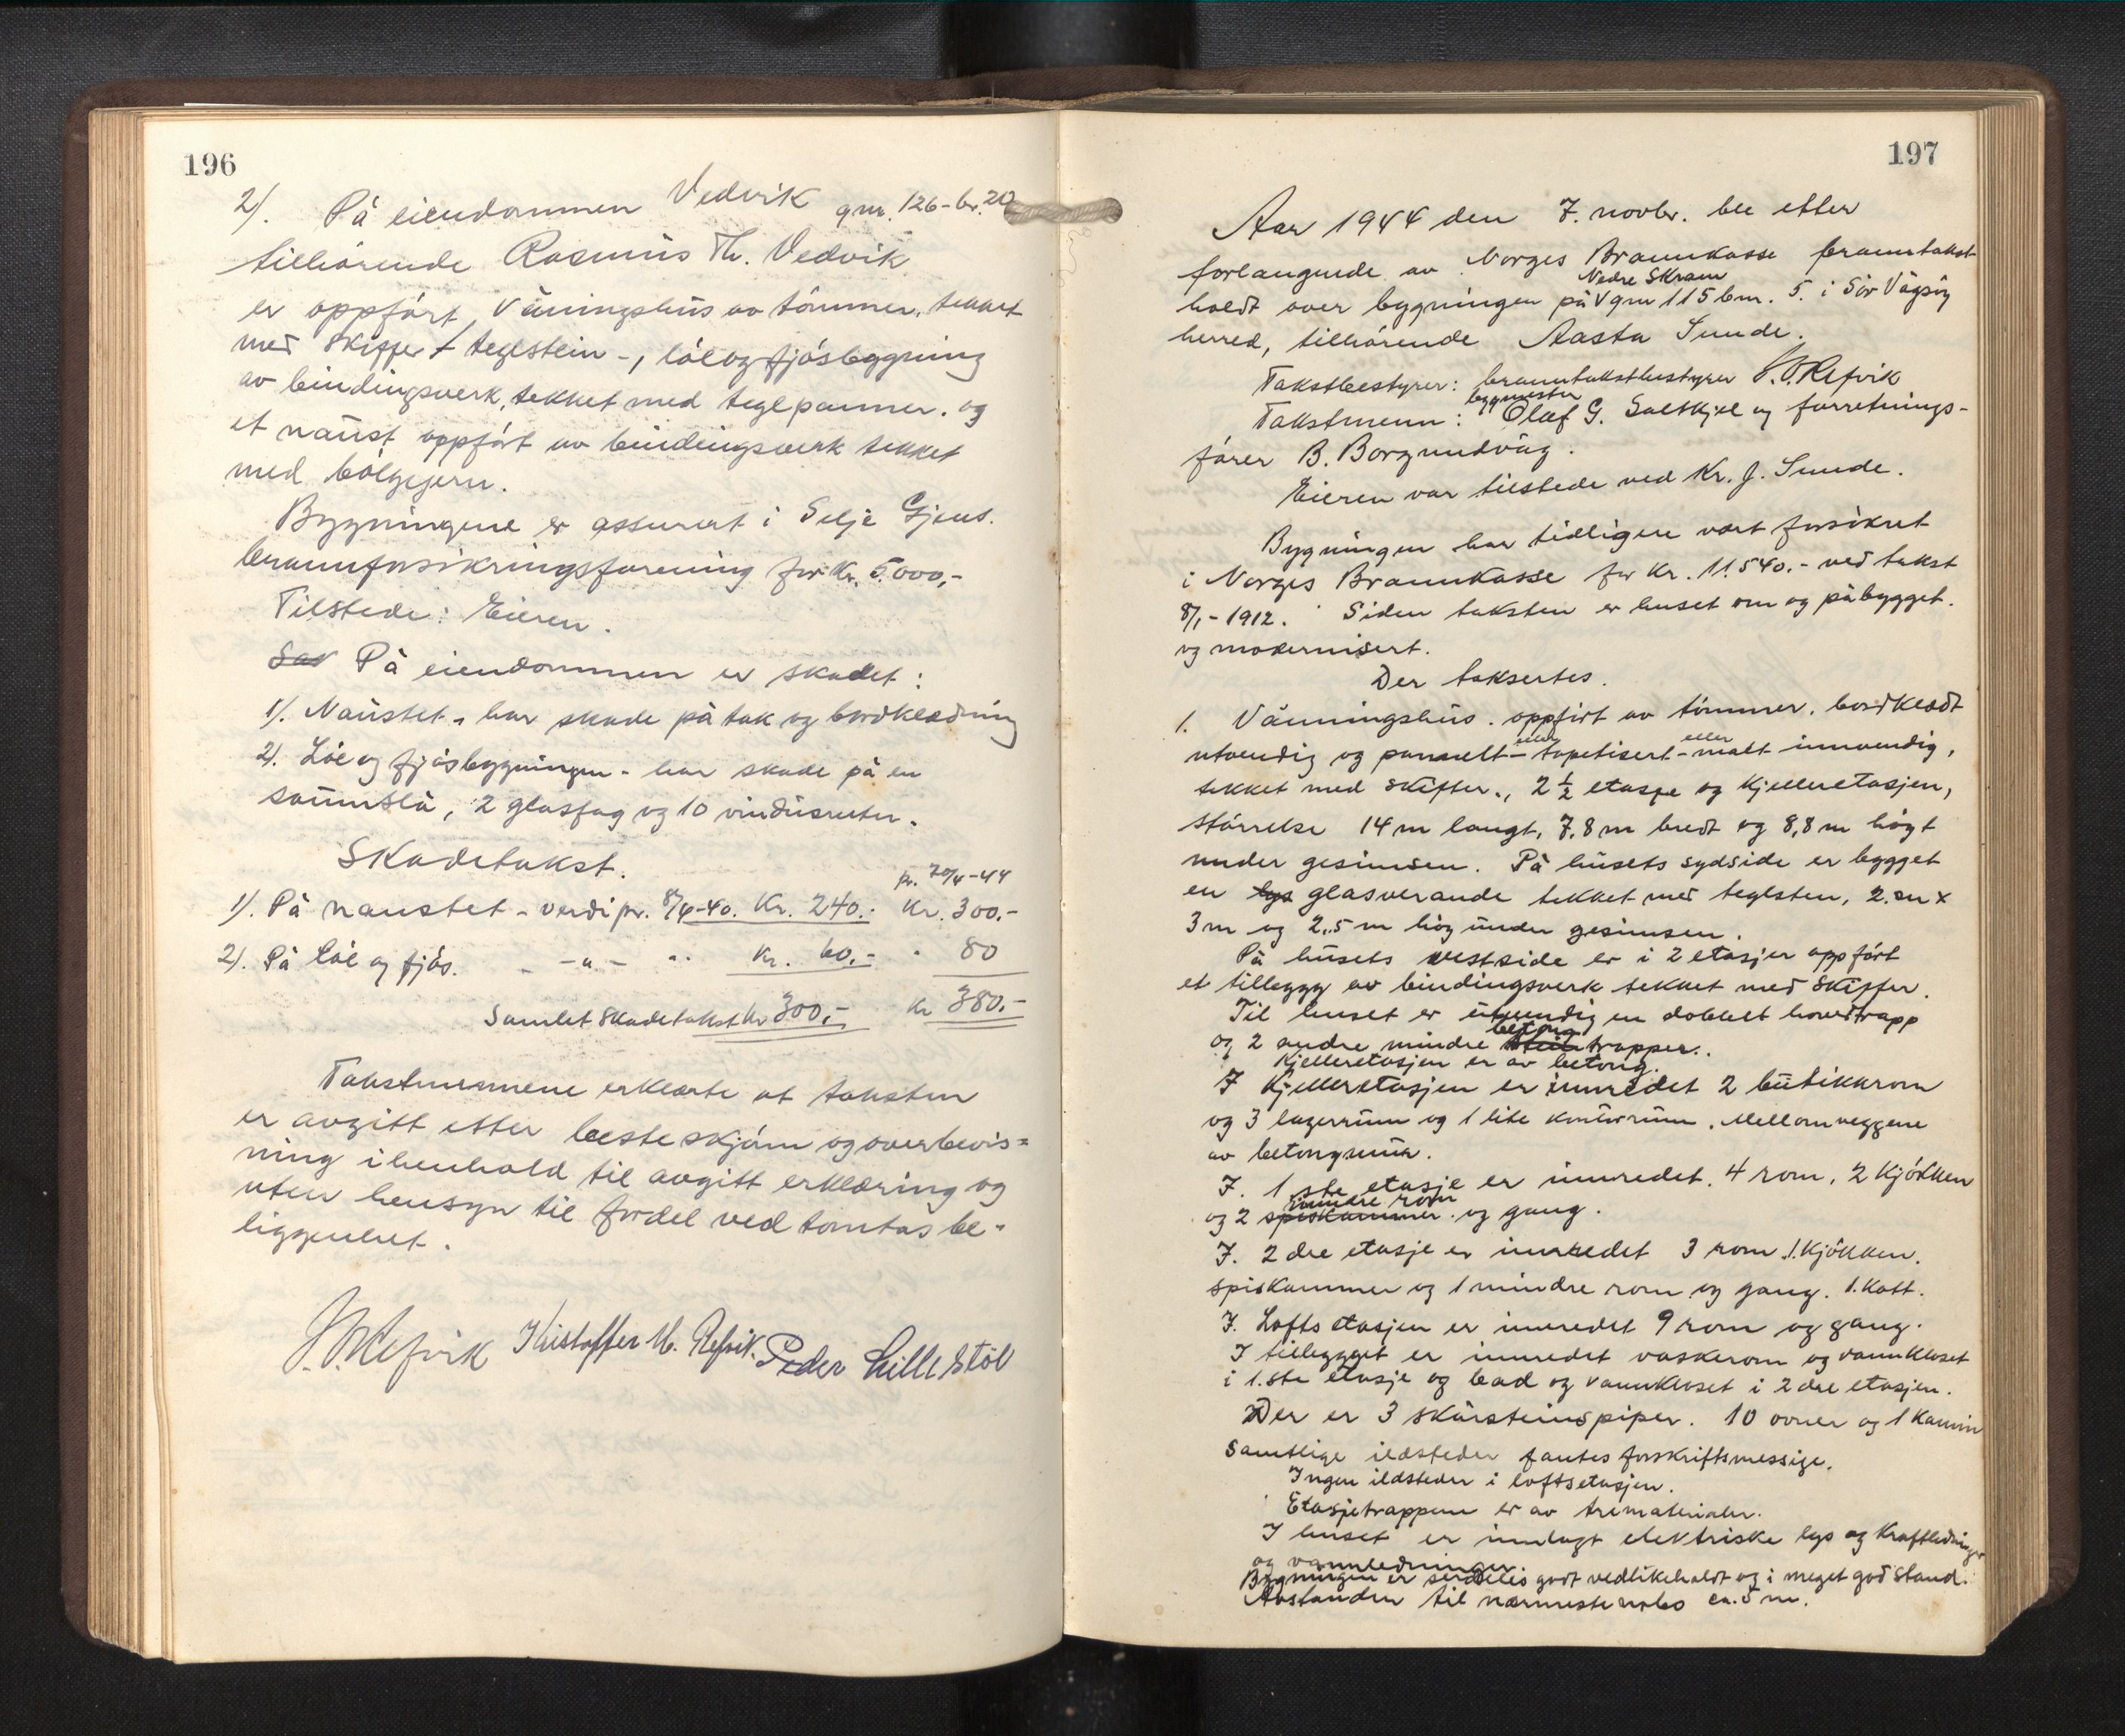 196
2). På eiendommen Vedvik gnr. 126 - br. 20
tilhörende Rasmus Th. Vedvik
er oppfört, Våningshus av tömmer, tekket
med skiffer + teglstein -, löe og fjösbygning
av bindingsverk, tekket med teglpanner. og
et naust oppfört av bindingsverk tekket
med bölgejern.
Bygningene er assurert i Selje Gjens.
brannforsikringsforening for Kr. 5.000,-
Tilstede: Eieren.
Sav På eiendommen er skadet:
1). Naustet - har skade på tak og bordklædning
2). Löe og fjösbygningen - har skade på en
saumslå, 2 glasfag og 10 vindusruter.
Skadetakst.
pr. 20/4-44
1). På naustet - verdi pr. 8/4-40. Kr. 240.- Kr. 300.-
2). På löe og fjös. - -"- " Kr. 60.- " 80
Samlet skadetakst Kr 300,- Kr 380.-
Takstmennene erklærte at taksten
er avgitt etter beste skjönn og overbevis=
ning i henhold til avgitt erklæring og
uten hensyn til fordel ved tomtas be-
liggenhet.
Kristoffer M. Refvik. Peder Lillestöl
197
Aar 1944 den 7. novbr. ble etter
forlangende av Norges Brannkasse branntakst
Nedre Skram
holdt over bygningen på V gnr 115 bnr. 5. i Sör Vågsöy
herred, tilhörende Aasta Sunde.
Takstbestyrer: branntakstbestyrer J. O. Refvik
byggmester
Takstmenn: Olaf G. Saltkjel og forretnings-
förer B. Borgundvåg.
Eieren var tilstede ved Kr. J. Sunde.
Bygningen har tidligere vært forsikret
i Norges Brannkasse for Kr. 11.540.- ved takst
8/1 - 1912. Siden taksten er huset om og påbygget.
og modernisert.
Der taksertes.
1. Våningshus. oppfört av tömmer. bordklædt
eller eller
utvendig og panelt - tapetisert - malt innvendig,
tekket med skiffer., 2 1/2 etasje og Kjelleretasjen,
störrelse 14 m langt, 7,8 m bredt og 8,8 m högt
under gesimsen. På husets sydside er bygget
en lys glasverande tekket med teglsten, 2. m x
3 m og 2,5 m hög under gesimsen.
På husets vestside er i 2 etasjer oppfört
et tillegg av bindingsverk tekket med skiffer.
Til huset er utvendig en dobbelt hovedtrapp
betong
og 2 andre mindre trapper.
Kjelleretasjen er av betong.
I Kjelleretasjen er innredet 2 butikkrom
og 3 lagerrum og 1 lite kontorrum. Mellomveggene
av betongmur.
I. 1 ste etasje er innredet. 4 rom, 2 Kjökken
mindre rom
og 2 spiskammer. og gang.
I. 2 dre etasje er innredet 3 rom 1. Kjökken.
spiskammer og 1 mindre rom og gang. 1. Kott.
I. Loftsetasjen er innredet 9 rom og gang.
I tillegget er innredet vaskerom og vannkloset
i 1. ste etasje og bad og vannkloset i 2 dre etasjen.
Der er 3 skorsteinspiper. 10 ovner og 1 Kamin
Samtlige ildsteder fantes forskriftsmessige.
Ingen ildsteder i loftsetasjen.
Etasjetrappene er av trematerialer.
I huset er innlagt elektriske lys og Kraftledninger
og vannledninger.
Bygningen er særdeles godt vedlikeholdt og i meget god stand.
Avstanden til nærmeste nabo ca. 5 m.